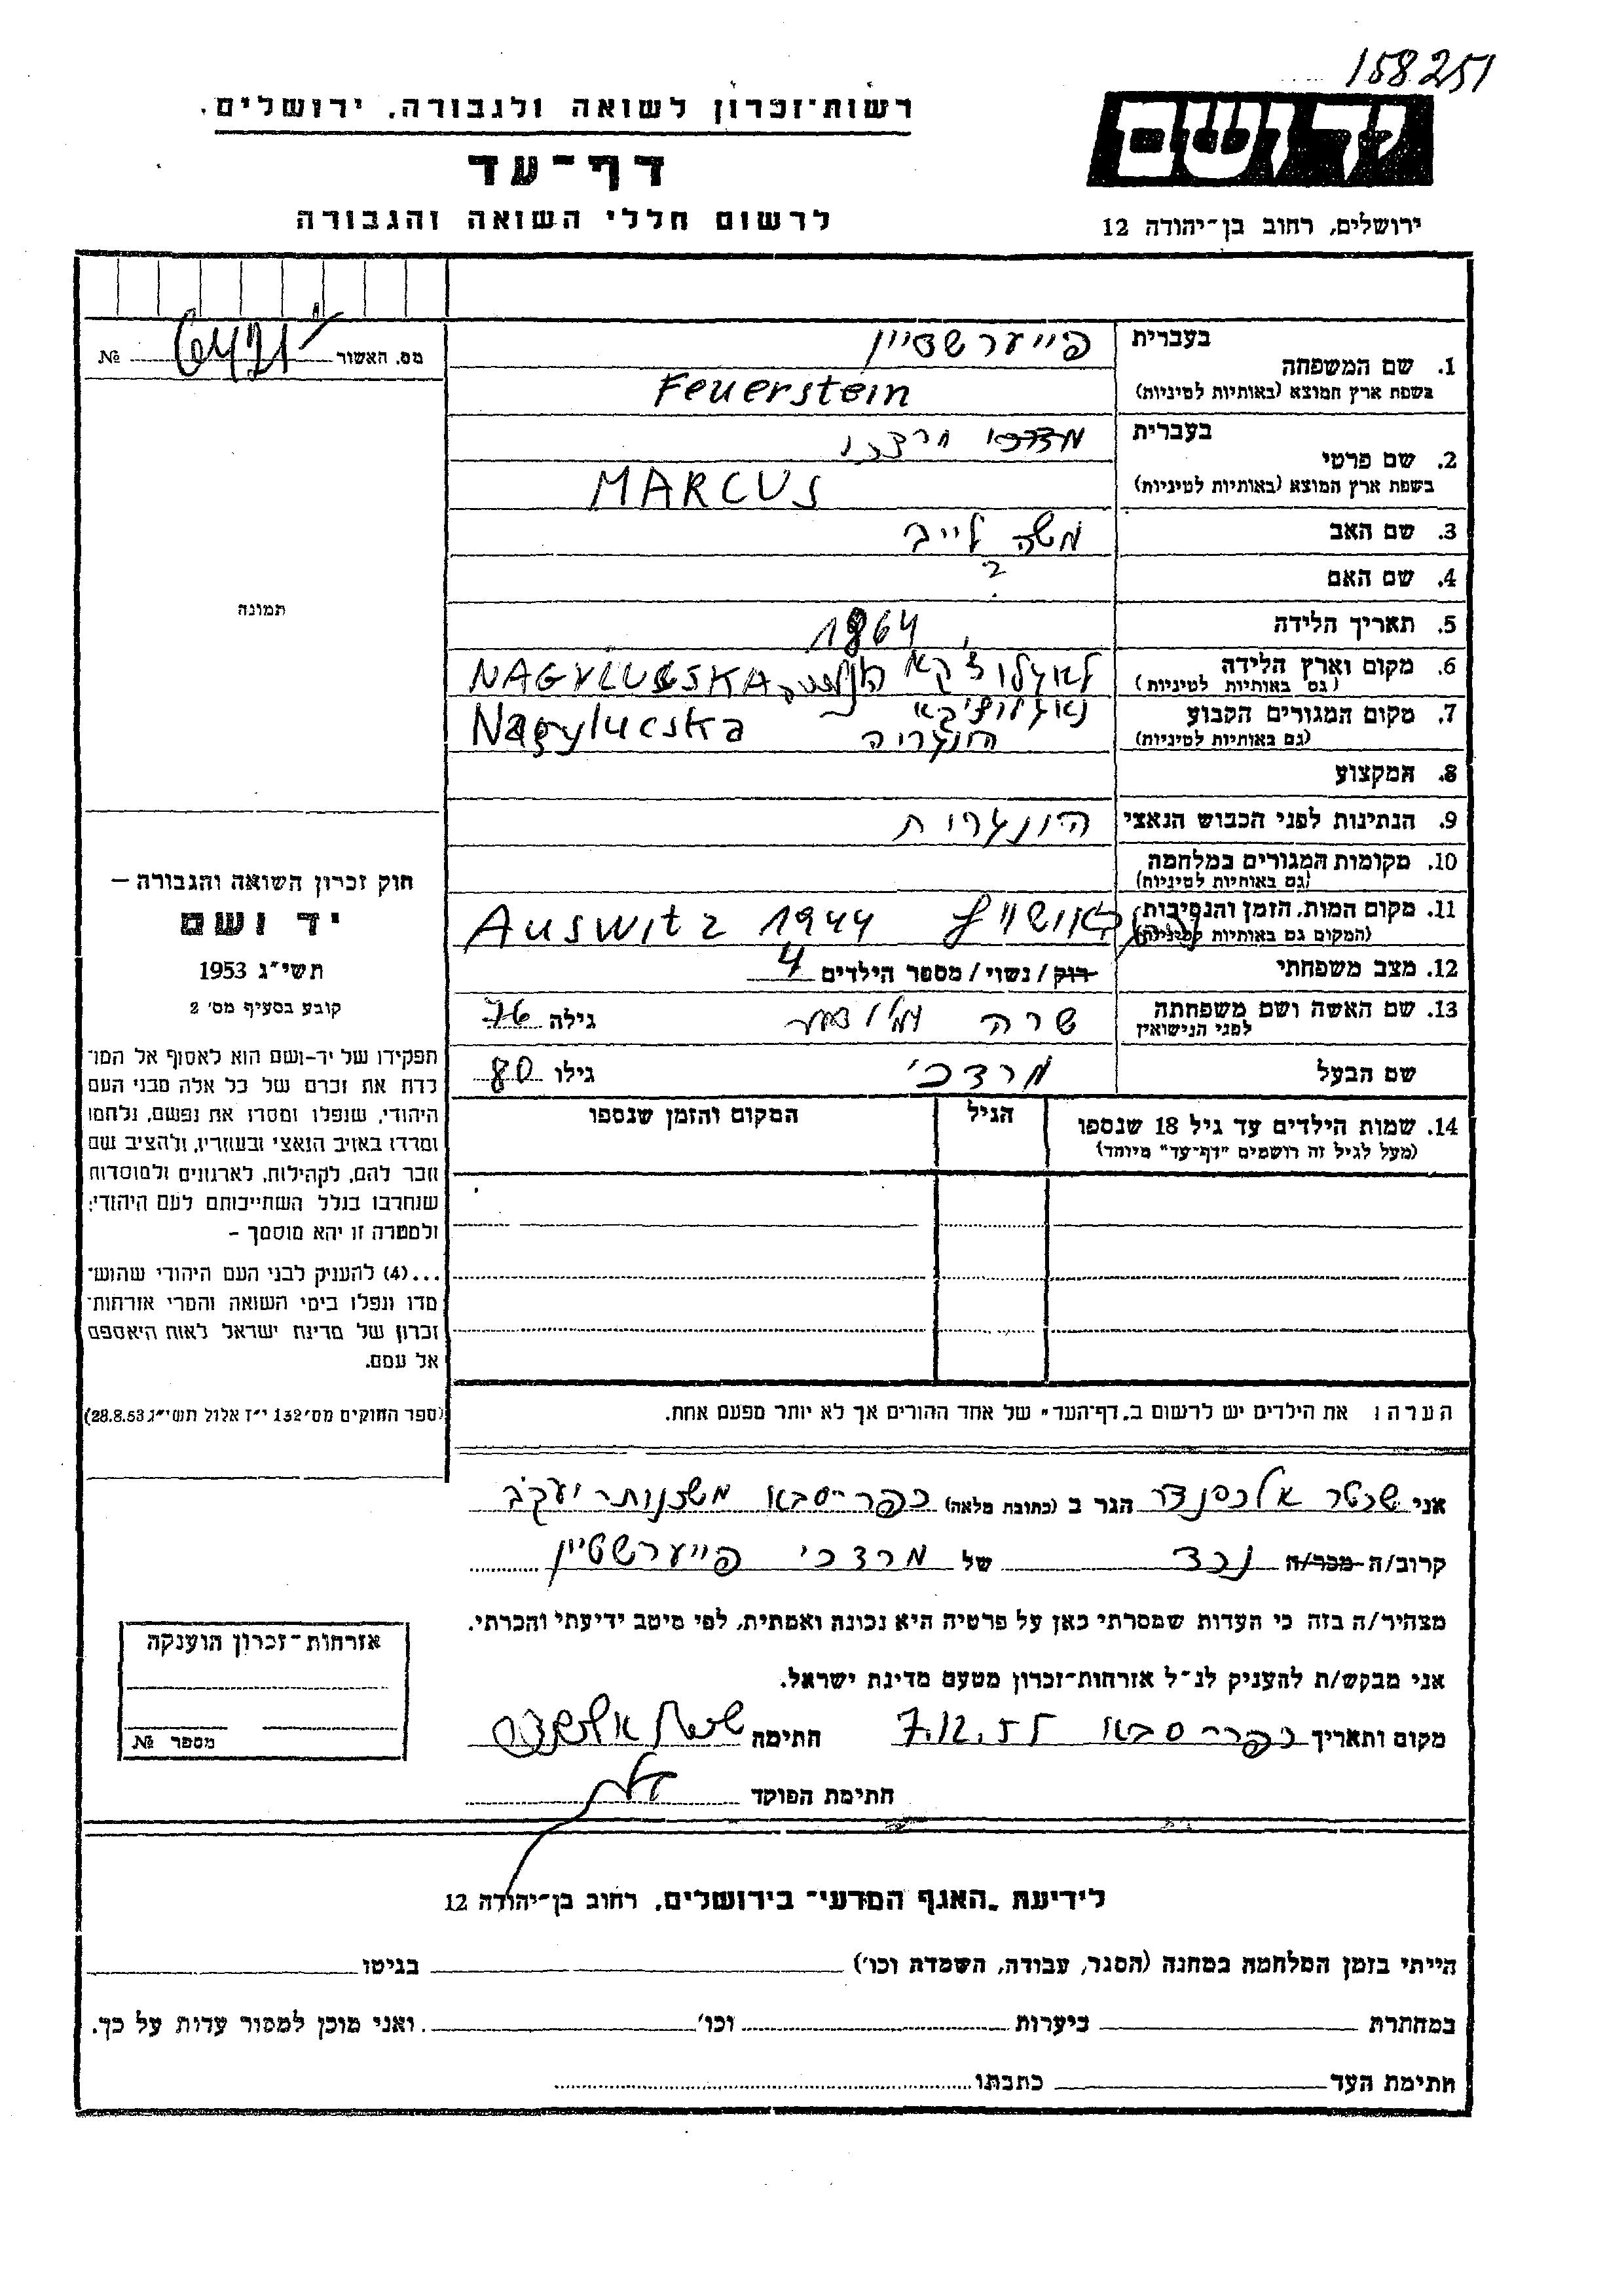 158251
רשות־זכרון לשואה ולגבורה, ירושלים.
דף־עד
לרשום חללי השואה והגבורה
יד ושם
ירושלים, רחוב בן־יהודה 12
מס. האשור № 6421
תמונה
1. שם המשפחה בעברית פייערשטיין
בשפת ארץ המוצא (באותיות לטיניות) Feuerstein
2. שם פרטי בעברית מרדכי
בשפת ארץ המוצא (באותיות לטיניות) MARCUS
3. שם האב משה לייב
4. שם האם ?
5. תאריך הלידה 1864
6. מקום וארץ הלידה
(גם באותיות לטיניות) NAGYLUCSKA
7. מקום המגורים הקבוע
(גם באותיות לטיניות) הונגריה Nagylucska
8. המקצוע
9. הנתינות לפני הכבוש הנאצי הונגרית
10. מקומות המגורים במלחמה
(גם באותיות לטיניות)
11. מקום המות, הזמן והנסיבות
(המקום גם באותיות לטיניות) אושוויץ Auswitz 1944
12. מצב משפחתי רוק / נשוי / מספר הילדים 4
13. שם האשה ושם משפחתה
לפני הנישואין שרה גילה 76
שם הבעל מרדכי גילו 80
14. שמות הילדים עד גיל 18 שנספו
(מעל לגיל זה רושמים "דף־עד" מיוחד)
הגיל
המקום והזמן שנספו
הערה: את הילדים יש לרשום ב"דף־העד" של אחד ההורים אך לא יותר מפעם אחת.
חוק זכרון השואה והגבורה –
יד ושם
תשי״ג 1953
קובע בסעיף מס׳ 2
תפקידו של יד-ושם הוא לאסוף אל המו־
לדת את זכרם של כל אלה מבני העם
היהודי, שנפלו ומסרו את נפשם, נלחמו
ומרדו באויב הנאצי ובעוזריו, ולהציב שם
וזכר להם, לקהילות, לארגונים ולמוסדות
שנחרבו בגלל השתייכותם לעם היהודי;
ולמטרה זו יהא מוסמך –
...(4) להעניק לבני העם היהודי שהוש־
מדו ונפלו בימי השואה והמרי אזרחות־
זכרון של מדינת ישראל לאות היאספם
אל עמם.
(ספר החוקים מס׳ 132 י״ז אלול תשי״ג 28.8.53)
אני אלכסנדר הגר ב (כתובת מלאה) כפר-סבא משכנות יעקב
קרוב/ה מכר/ה נכד של מרדכי פייערשטיין
מצהיר/ה בזה כי העדות שמסרתי כאן על פרטיה היא נכונה ואמתית, לפי מיטב ידיעתי והכרתי.
אני מבקש/ת להעניק לנ״ל אזרחות־זכרון מטעם מדינת ישראל.
מקום ותאריך כפר סבא 7.12.55 חתימה
חתימת הפוקד
אזרחות־זכרון הוענקה
מספר №
לידיעת "האגף המדעי" בירושלים, רחוב בן־יהודה 12
הייתי בזמן המלחמה במחנה (הסגר, עבודה, השמדה וכו׳) בגיטו
במחתרת ביערות וכו׳ ואני מוכן למסור עדות על כך.
חתימת העד כתבתו